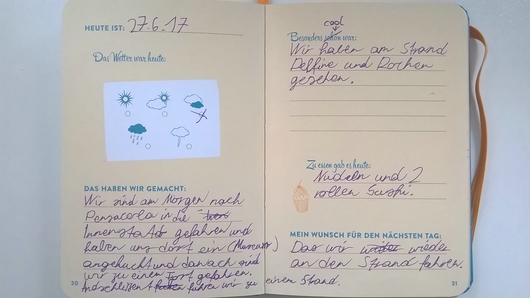 HEUTE IST: 27.6.17
Das Wetter war heute:
DAS HABEN WIR GEMACHT:
Wir sind am Morgen nach
Pensacola in die
Innenstadt gefahren und
haben uns dort ein (Museum)
angekuckt und danach sind
wir zu einem Fort gefahren.
Anschliesent fuhren wir zu einem Strand.
30
cool
Besonders schön war:
Wir haben am Strand
Delfine und Rochen
gesehen.
Zu essen gab es heute:
Nudeln und 2
rollen Sushi.
MEIN WUNSCH FÜR DEN NÄCHSTEN TAG:
Das wir wieder
an den Strand fahren.
31